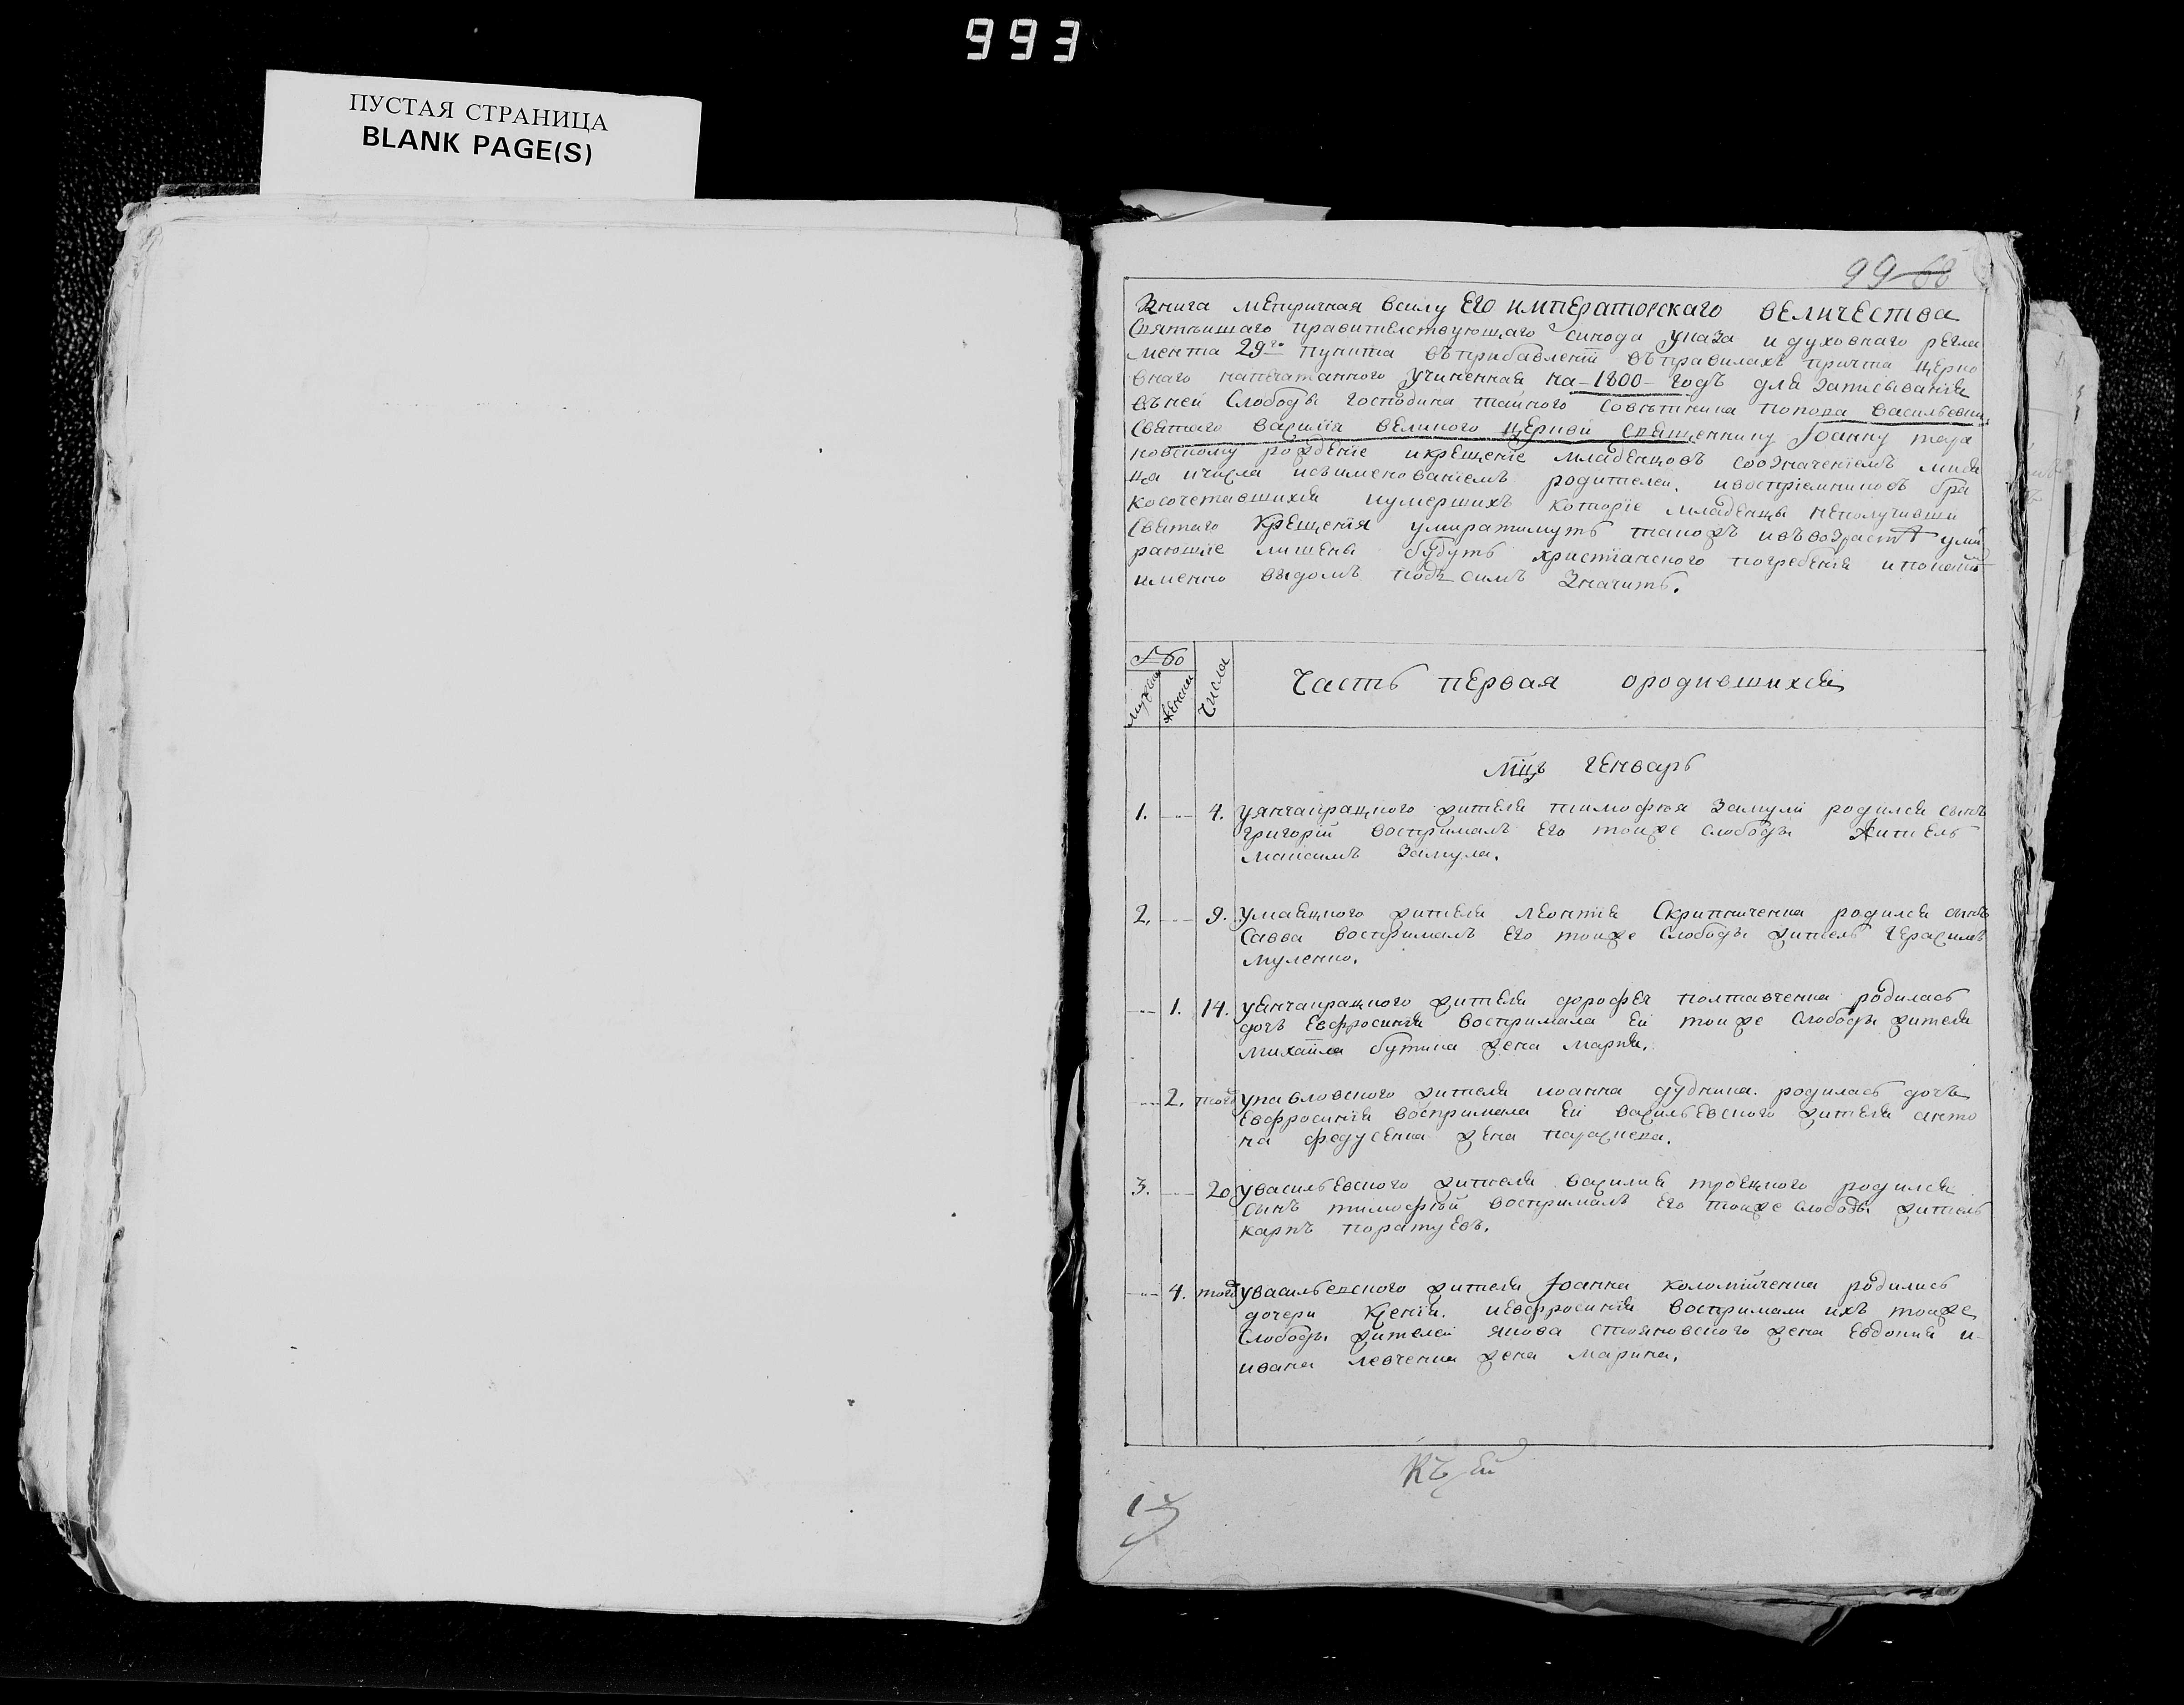 993
ПУСТАЯ СТРАНИЦА
BLANK PAGE(S)
99 68
Книга метричная всилу Его императорскаго величества
Святѣишаго правителствующаго синода указа идуховнаго регла
мента 29го пункта въприбавленїи въправилахъ причта церко
внаго напечатанного учиненная на-1800-годъ для записыванїя
въней Слободы господина тайного совѣтника попова васильевки
святаго василїя великого церкви священнику Іоанну тара
новскому рожденїе икрещенїе младенцовъ сообзначенїемъ мися
ца ичисла исъименованїемъ родителеи. ивоспрїемниковъ бра
косочетавшихся иумершихъ которїе младенцы неполучивши
святаго крещенїя умиратимуть такожъ ивъвозрастѣ уми
рающїе лишены будуть христїанского погребенїя ипокаїй
именно видомъ подъ симъ значить.
мужеска
женска
Числа
Часть первая ородившихся
мцъ генварь
1. 4. уянчакрацкого жителя тимофея замули родился сынъ
григорїй воспримавъ его тоиже слободы житель
максимъ замула.
2. 9. умаяцкого жителя леонтїя Скрипниченка родился сынъ
Савва воспримавъ его тоиже слободы житель герасимъ
муленко.
1. 14. уянчакрацкого жителя дорофея полтавченка родилась
дочь евфросинїя воспримала еи тоиже слободы жителя
михаила бутика жена марїя.
2. тогож упавловского жителя иоанна дудника. родилась дочь
евфросинїя воспримала еи васильевского жителя анто
на федусенка жена параскева.
3. 20 увасильевского жителя василия троецкого родился
сынъ тимофѣй воспримавъ его тоиже слободы житель
карпъ поратуевъ.
4. тогож увасильевского жителя Іоанна коломїйченка родились
дочери ксенїя. иевфросинїя воспримали ихъ тоиже
слободы жителей якова стояновского жена евдокия и-
ивана левченка жена марина.